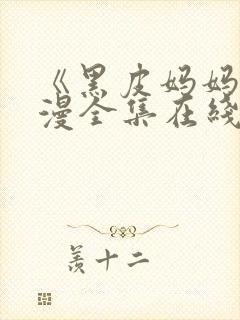 《黑皮妈妈
漫全集在线
羡十二